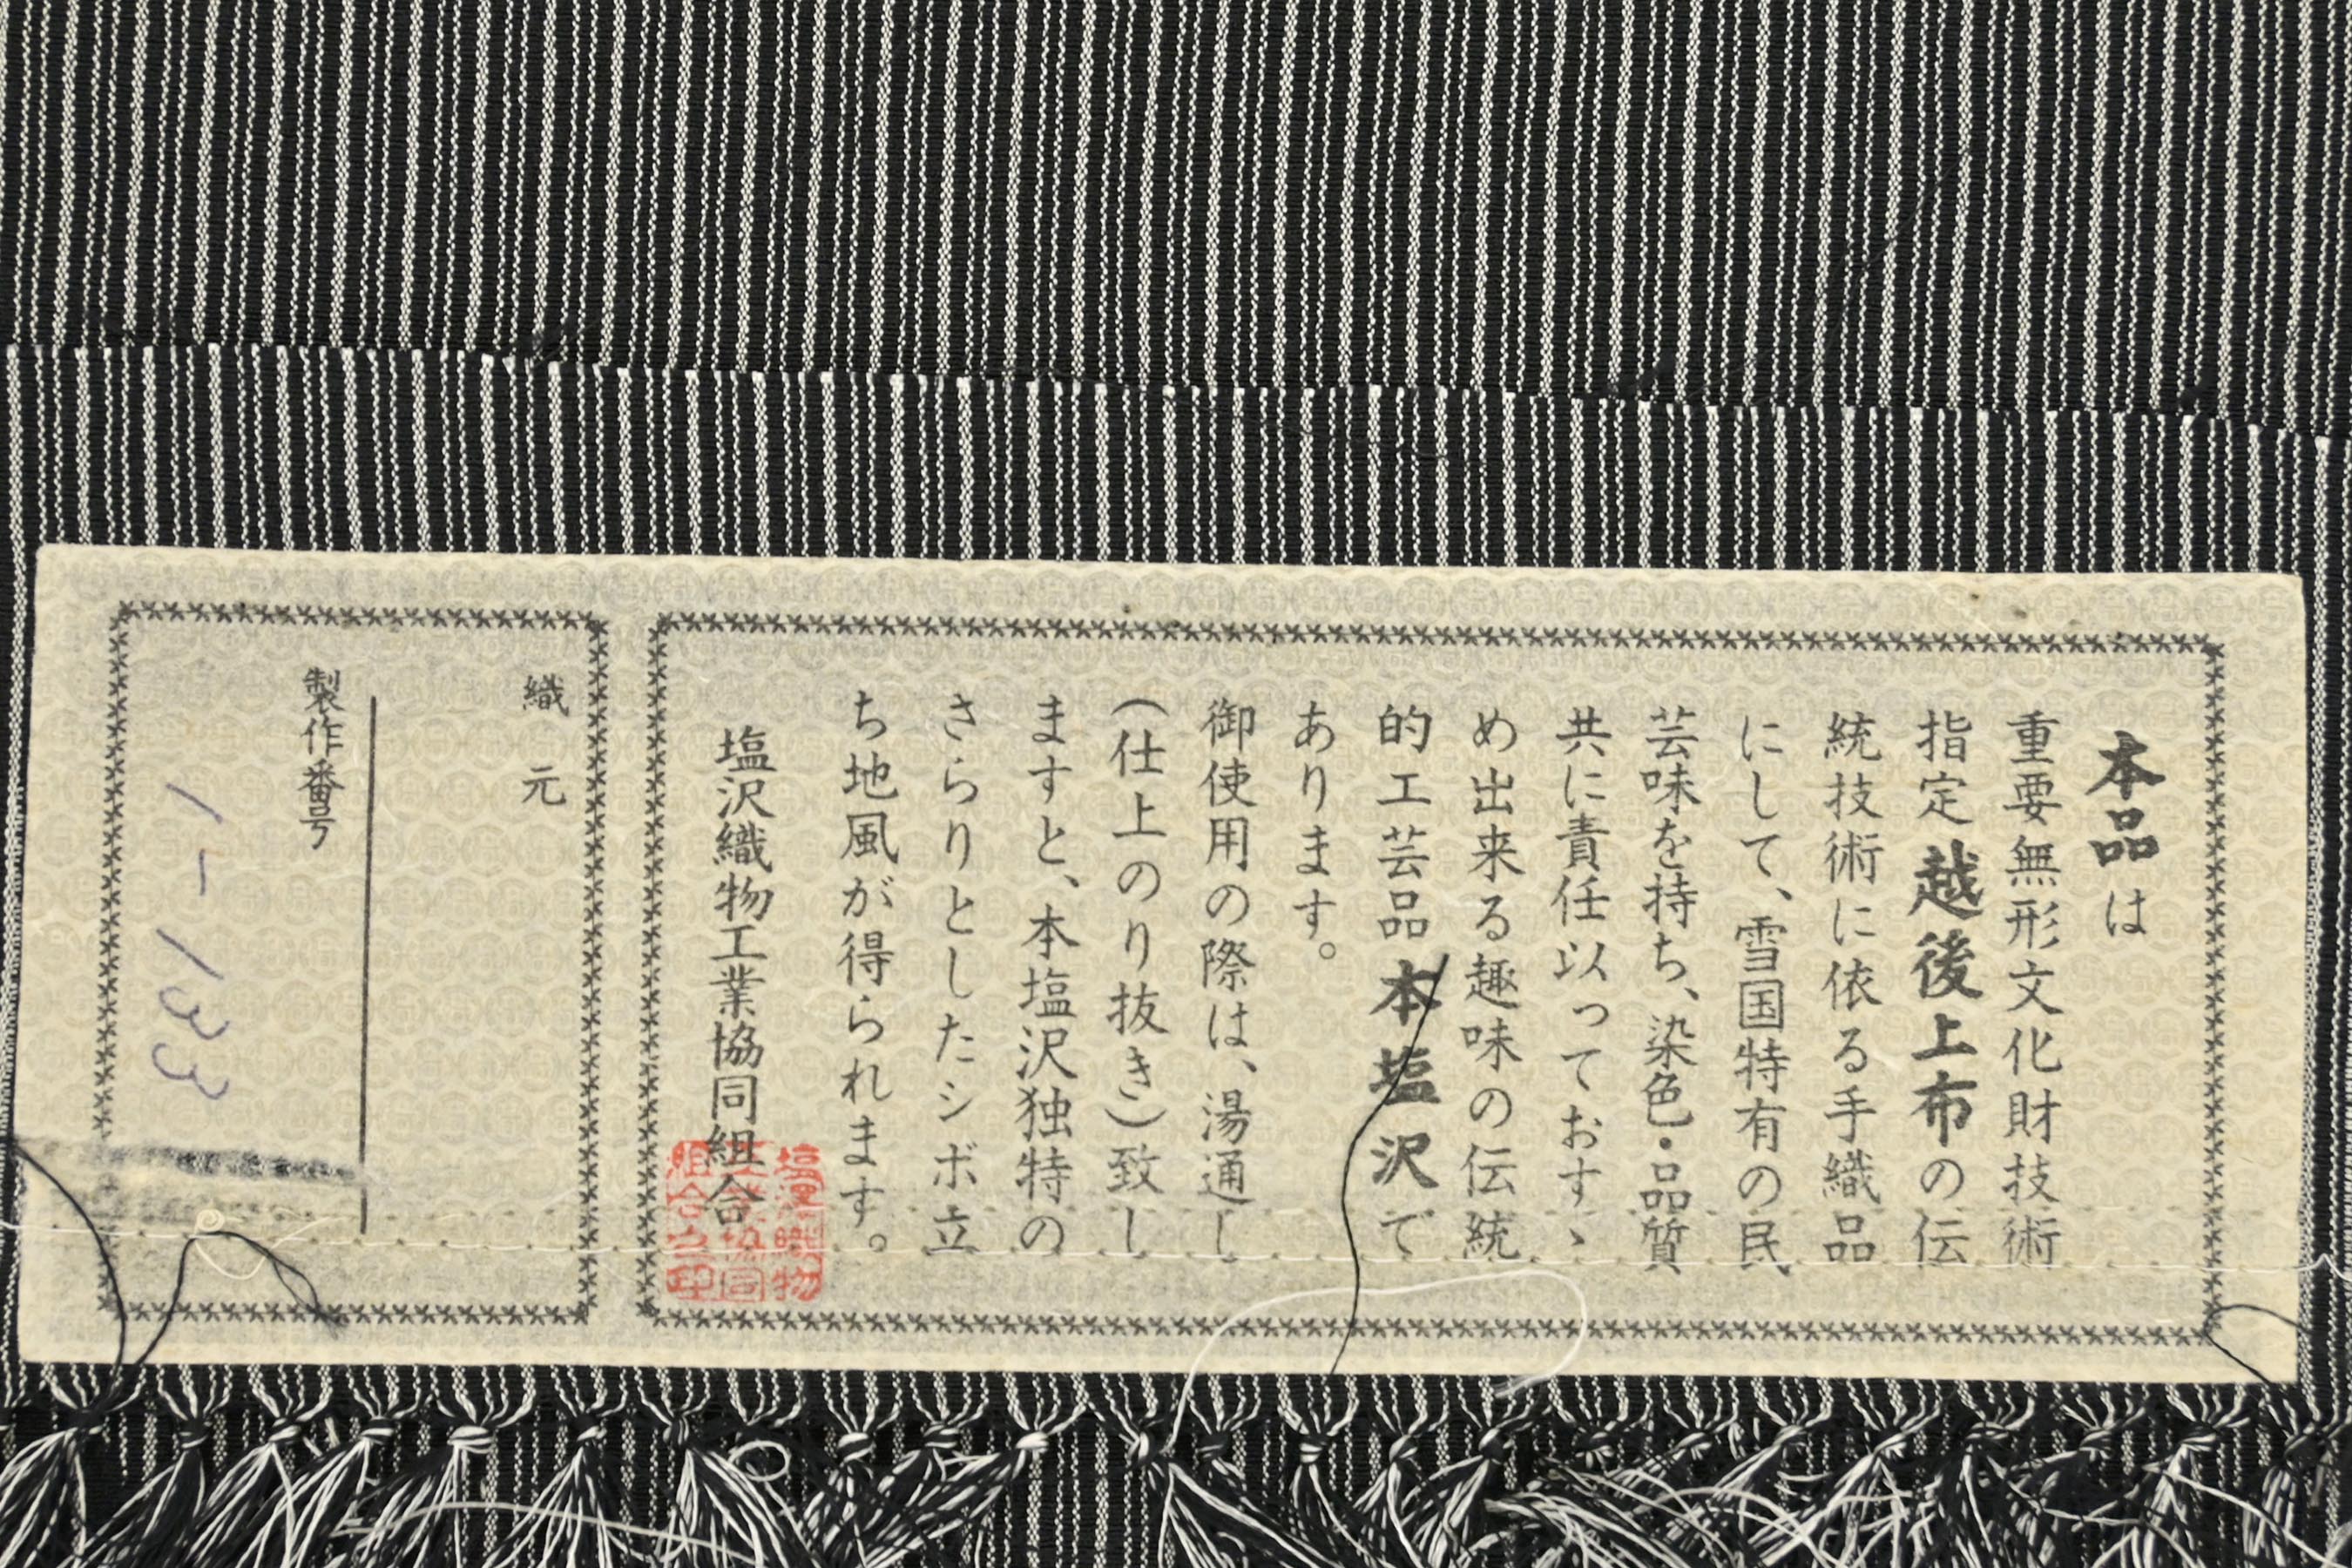 本品は
重要無形文化財技術
指定越後上布の伝
統技術に依る手織品
にして、雪国特有の民
芸味を持ち、染色・品質
共に責任以っておすゝ
め出来る趣味の伝統
的工芸品本塩沢で
あります。
御使用の際は、湯通し
(仕上のり抜き)致し
ますと、本塩沢独特の
さらりとしたシボ立
ち地風が得られます。
塩沢織物工業協同組合
塩沢織物
工業協同
組合之印
織元
製作番号
1-133